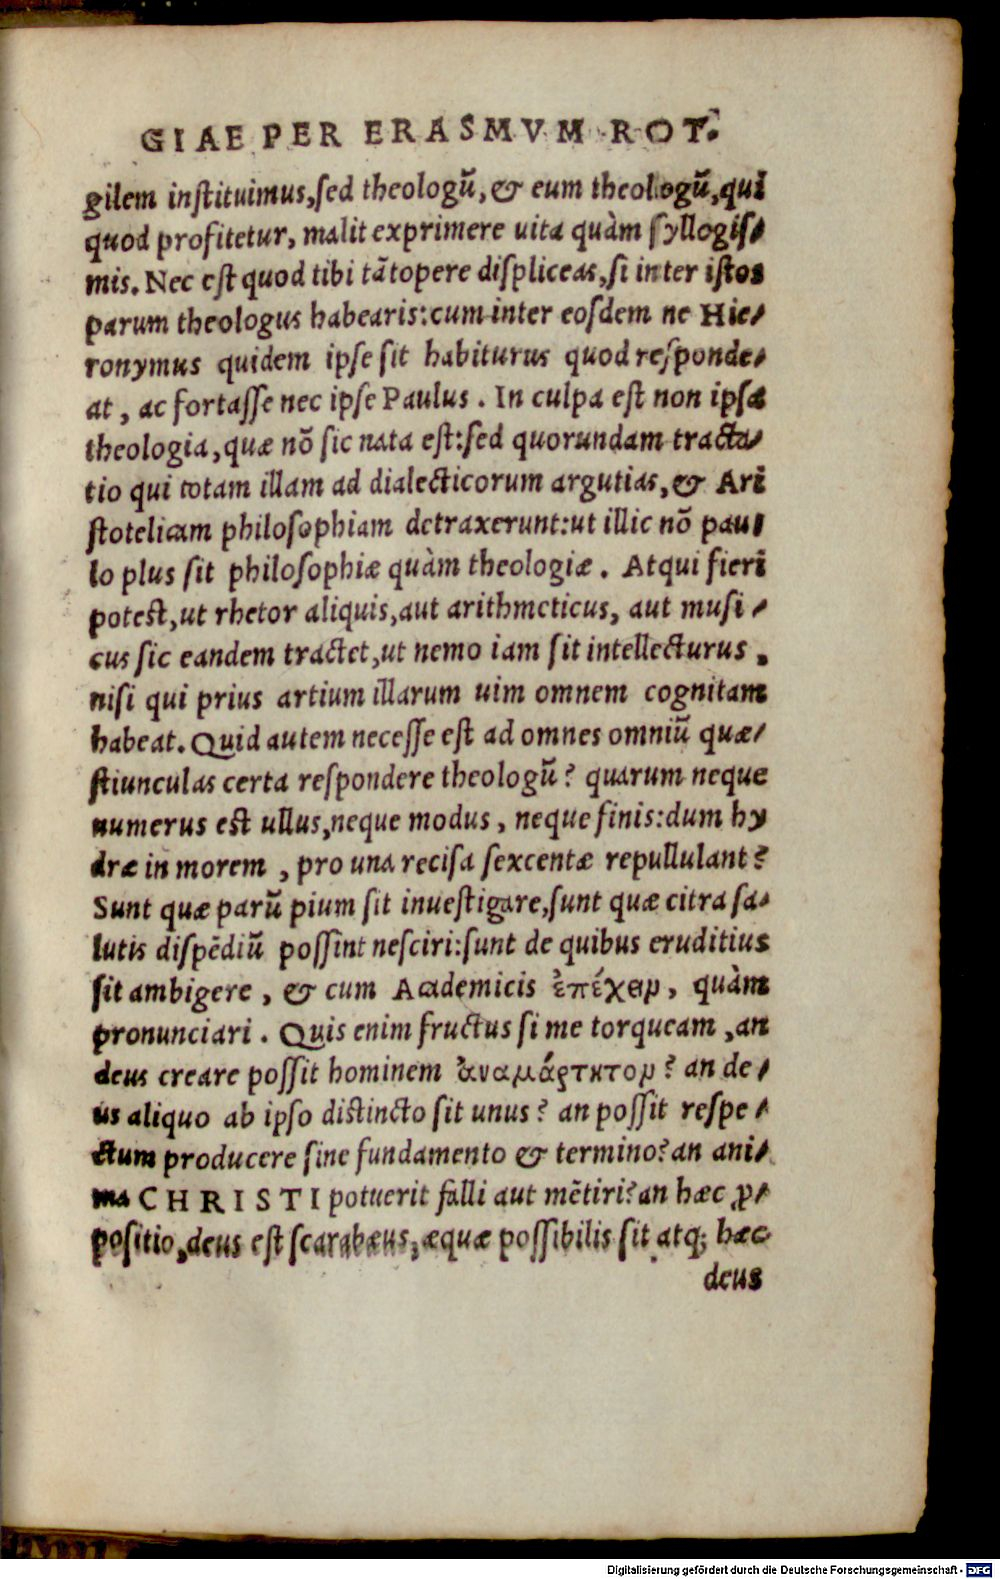 GIAE PER ERASMVM ROT.
gilem instituimus,sed theologū,& eum theologū,qui
quod profitetur, malit exprimere uita quàm syllogis⸗
mis. Nec est quod tibi tātopere displiceas,si inter istos
parum theologus habearis:cum inter eosdem ne Hie⸗
ronymus quidem ipse sit habiturus quod responde⸗
at, ac fortasse nec ipse Paulus. In culpa est non ipsa
theologia,quæ nō sic nata est:sed quorundam tracta⸗
tio qui totam illam ad dialecticorum argutias,& Ari
stotelicam philosophiam detraxerunt:ut illic nō pau
lo plus sit philosophiæ quàm theologiæ. Atqui fieri
potest,ut rhetor aliquis,aut arithmeticus, aut musi⸗
cus sic eandem tractet,ut nemo iam sit intellecturus,
nisi qui prius artium illarum uim omnem cognitam
habeat. Quid autem necesse est ad omnes omniū quæ⸗
stiunculas certa respondere theologū? quarum neque
numerus est ullus,neque modus, neque finis:dum hy
dræ in morem, pro una recisa sexcentæ repullulant?
Sunt quæ parū pium sit inuestigare,sunt quæ citra sa⸗
lutis dispēdiū possint nesciri:sunt de quibus eruditius
sit ambigere, & cum Academicis ἐπέχειν, quàm
pronunciari. Quis enim fructus si me torqueam, an
deus creare possit hominem ἀναμάρτητον? an de⸗
us aliquo ab ipso distincto sit unus? an possit respe⸗
ctum producere sine fundamento & termino? an ani⸗
ma CHRISTI potuerit falli aut mētiri? an hæc ꝓ⸗
positio,deus est scarabæus,æquæ possibilis sit atq; hæc
deus
Digitalisierung gefördert durch die Deutsche Forschungsgemeinschaft - DFG